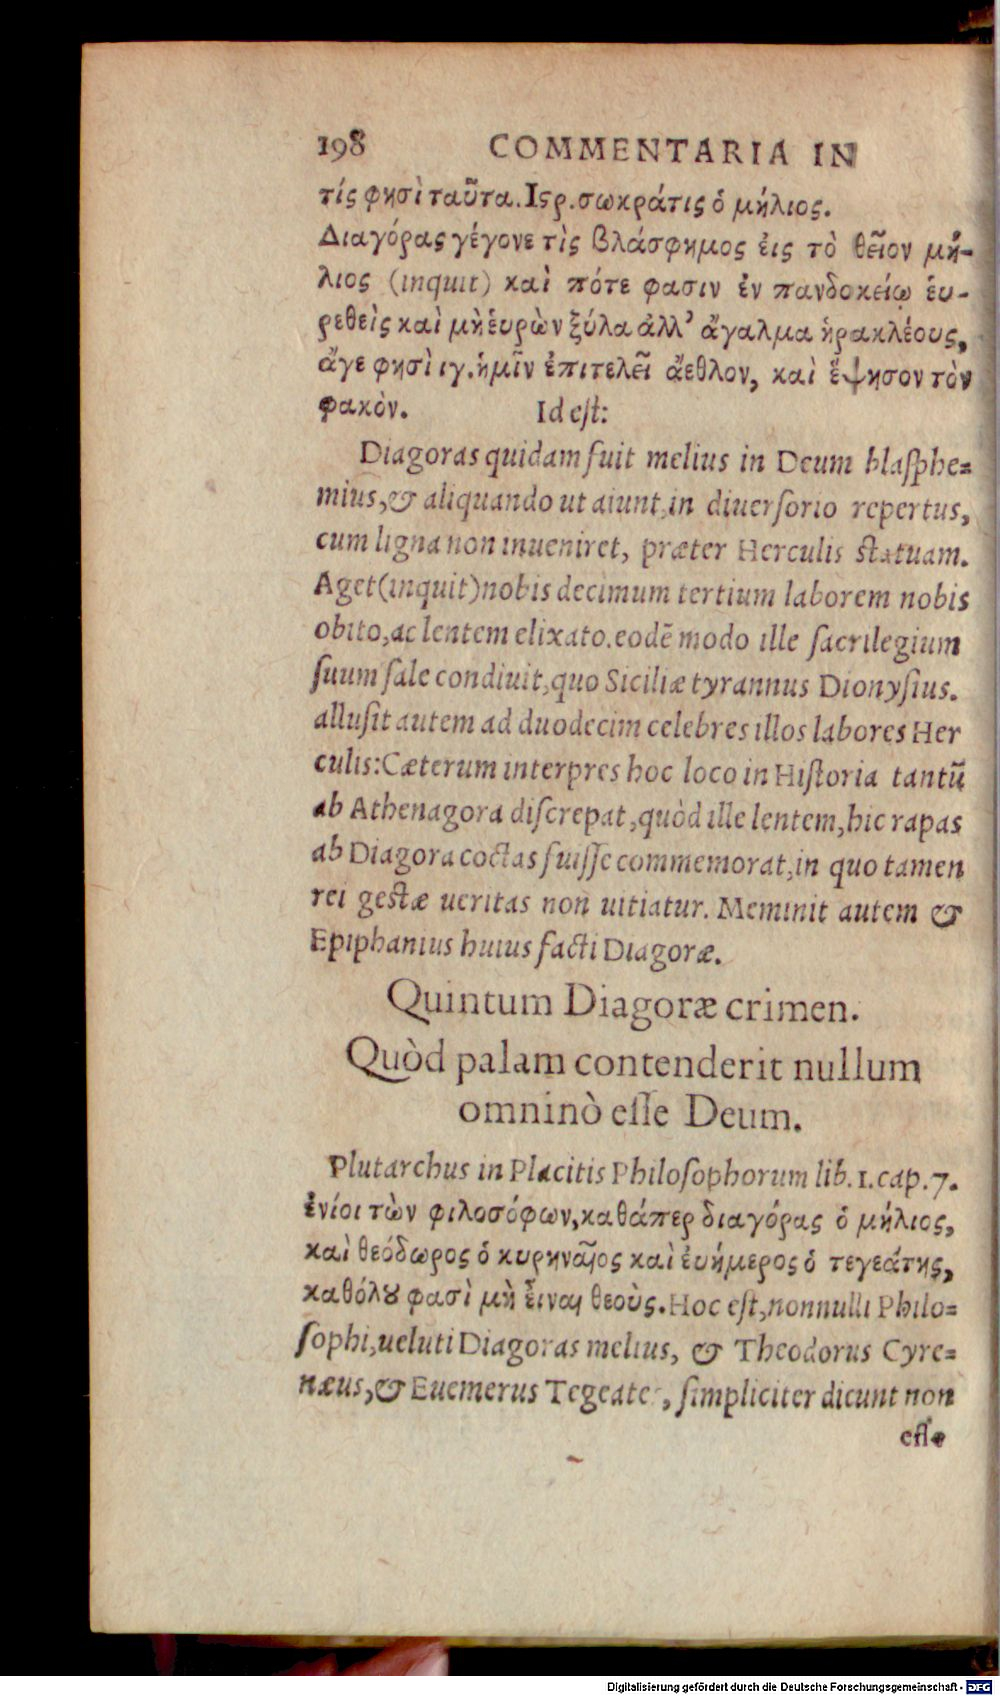 198 COMMENTARIA IN
τίς φησὶ ταῦτα. Ιςρ. σωκράτις ὁ μήλιος.
Διαγόρας γέγονε τὶς βλάσφημος ἐις τὸ θεῖον μή-
λιος (inquit) καὶ πότε φασιν ἐν πανδοκείῳ ἑυ-
ρεθεὶς καὶ μὴ ἑυρὼν ξύλα ἀλλ᾽ ἄγαλμα ἡρακλέους,
ἄγε φησὶ ιγ. ἡμῖν ἐπιτελεῖ ἄεθλον, καὶ ἕψησον τὸν
φακὸν. Id eſt:
Diagoras quidam fuit melius in Deum blaſphe=
mius, & aliquando ut aiunt, in diuerſorio repertus,
cum ligna non inueniret, præter Herculis ſtatuam.
Aget (inquit) nobis decimum tertium laborem nobis
obito, ac lentem elixato. eodē modo ille ſacrilegium
ſuum ſale condiuit, quo Siciliæ tyrannus Dionyſius.
alluſit autem ad duodecim celebres illos labores Her
culis: Cæterum interpres hoc loco in Hiſtoria tantū
ab Athenagora diſcrepat, quòd ille lentem, hic rapas
ab Diagora coctas fuiſſe commemorat, in quo tamen
rei geſtæ ueritas non uitiatur. Meminit autem &
Epiphanius huius facti Diagoræ.
Quintum Diagoræ crimen.
Quòd palam contenderit nullum
omninò eſſe Deum.
Plutarchus in Placitis Philoſophorum lib. 1. cap. 7.
ἐνίοι τὼν φιλοσόφων, καθάπερ διαγόρας ὁ μήλιος,
καὶ θεόδωρος ὁ κυρηναῖος καὶ ἐυήμερος ὁ τεγεάτης,
καθόλȣ φασὶ μὴ εἶναι θεοὺς. Hoc eſt, nonnulli Philo=
ſophi, ueluti Diagoras melius, & Theodorus Cyre=
næus, & Euemerus Tegeate, ſimpliciter dicunt non
eſſe
Digitalisierung gefördert durch die Deutsche Forschungsgemeinschaft - DFG